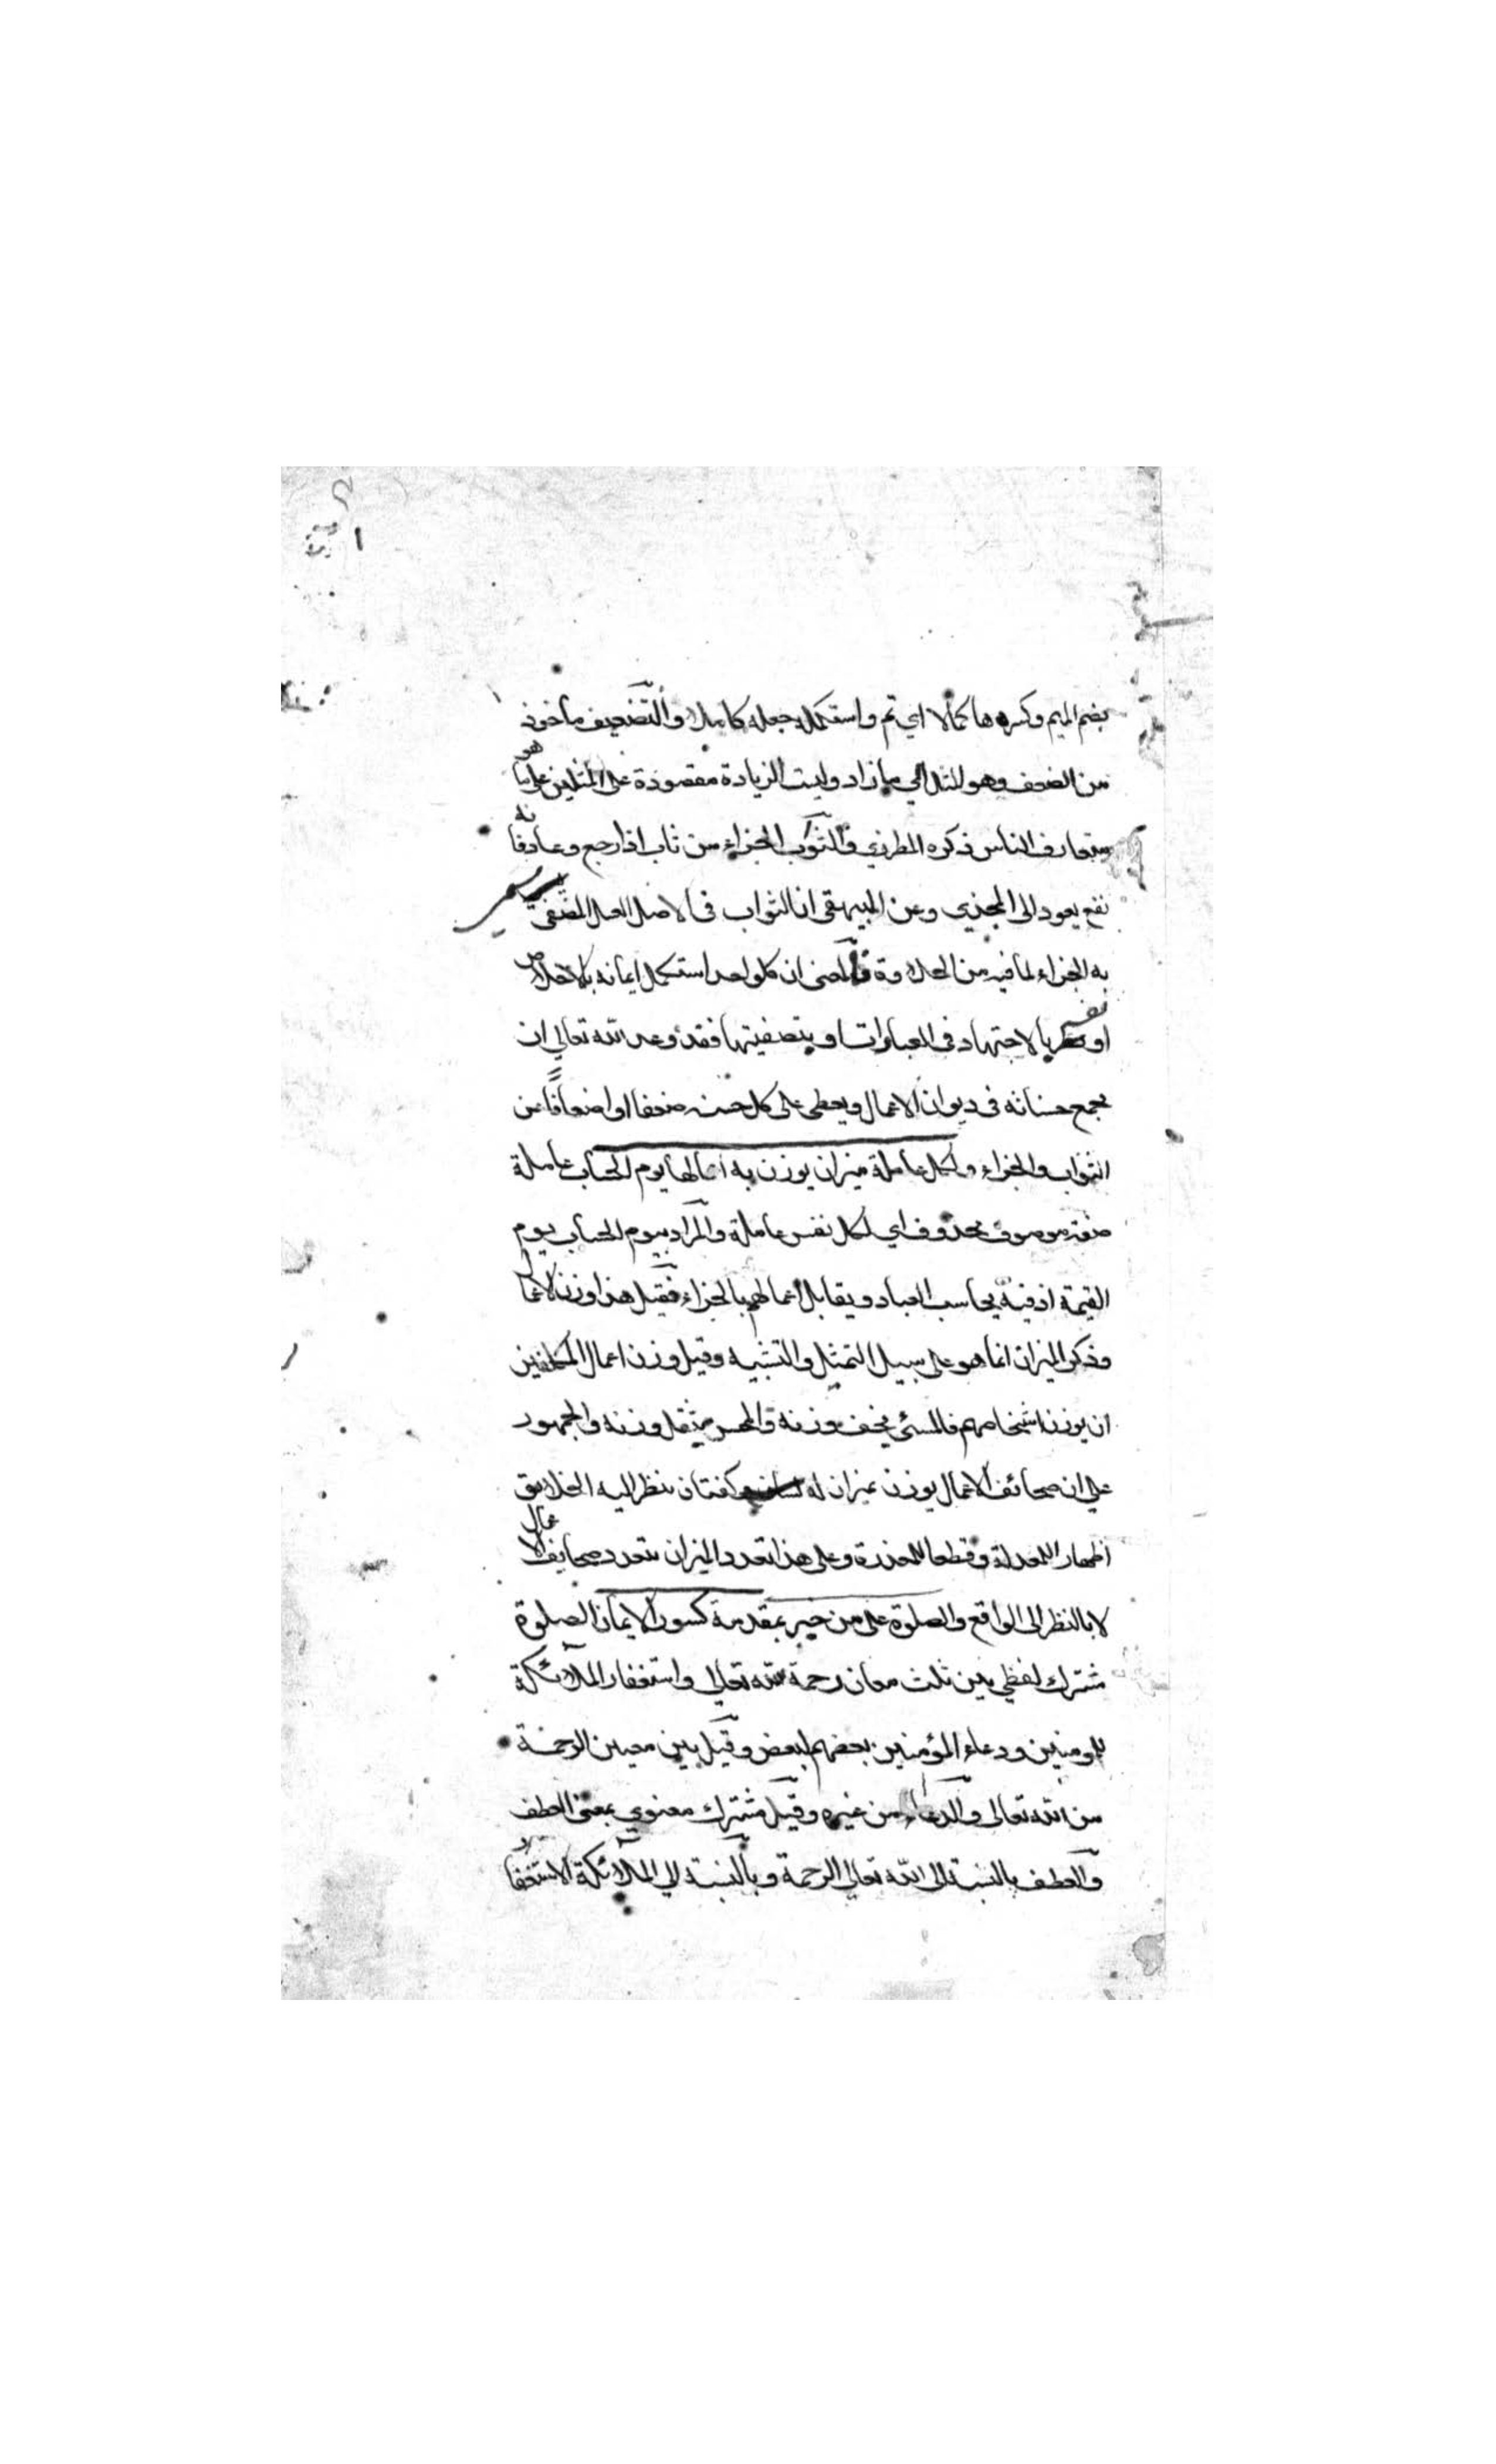 بضم الميم وكسرها كمالا اي تم واستكمله جعله كاملا والتضعيف مأخوذ
من الضعف وهو المثل الي ما زاد وليست الزيادة مقصودة على المثلين على ما هو
متعارف الناس ذكره المطرزي والثواب الجزاء من ثاب اذا رجع وعاد فانه
نفع يعود الى المجذي وعن البيهقي ان الثواب فى الاصل العسل المصفى سمى
به الجزاء لما فيه من الحلاوة فالمعنى ان كل واحد استكمل ايمانه بالاخلاص
او نفسه بالاجتهاد فى العبادات او بتصفيتها فقد وعد الله تعالي ان
يجمع حسناته فى ديوان الاعمال ويعطى على كل حسنه ضعفا او اضعافا من
الثواب والجزاء ولكل عاملة ميزان يوزن به اعمالها يوم الحساب عاملة
صفة موصوف محذوف اي لكل نفس عاملة والمراد بيوم الحساب يوم
القيمة اذ فيه يحاسب العباد ويقابل اعمالهم بالجزاء فقيل هذا وزن الاعمال
وذكر الميزان انما هو على سبيل التمثيل والتشبيه وقيل وزن اعمال المكلفين
ان يوزن اشخاصهم فالمسئ يخف وزنه والمحسن يثقل وزنه والجمهور
على ان صحائف الاعمال يوزن بميزان له لسان وكفتان ينظر اليه الخلايق
اظهارا للمعدلة وقطعا للمعذرة وعلى هذا تعدد الميزان بتعدد صحايف الاعمال
لا بالنظر الى الواقع والصلوة على من خير بمقدمة كسور الايمان الصلوة
مشترك لفظي بين ثلث معان رحمة الله تعالي واستغفار الملائكة
للمومنين ودعاء المؤمنين بعضهم لبعض وقيل بين معيين الرحمة
من الله تعالى والدعاء من غيره وقيل مشترك معنوي بمعنى العطف
والعطف بالنسبة الى الله تعالي الرحمة وبالنسبة الي الملائكة الاستغفار